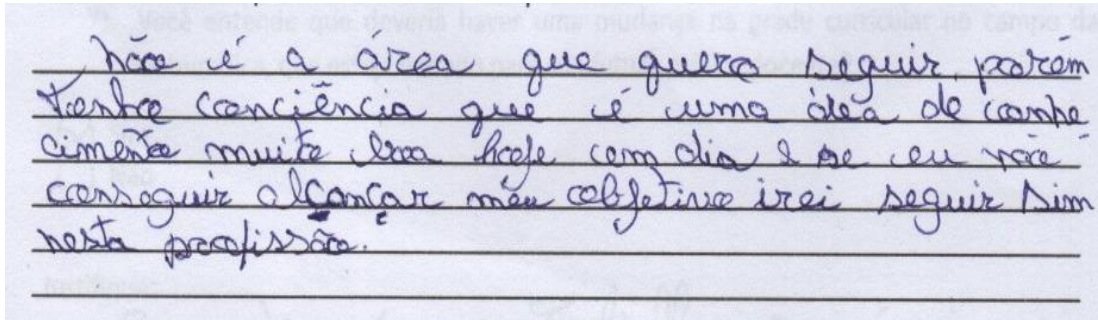 não é a area que quero seguir porém
tenho conciência que é uma área de conhe
cimento muito boa hoje em dia e se eu não
conseguir alcançar meu objetivo irei seguir sim
nesta profissão.